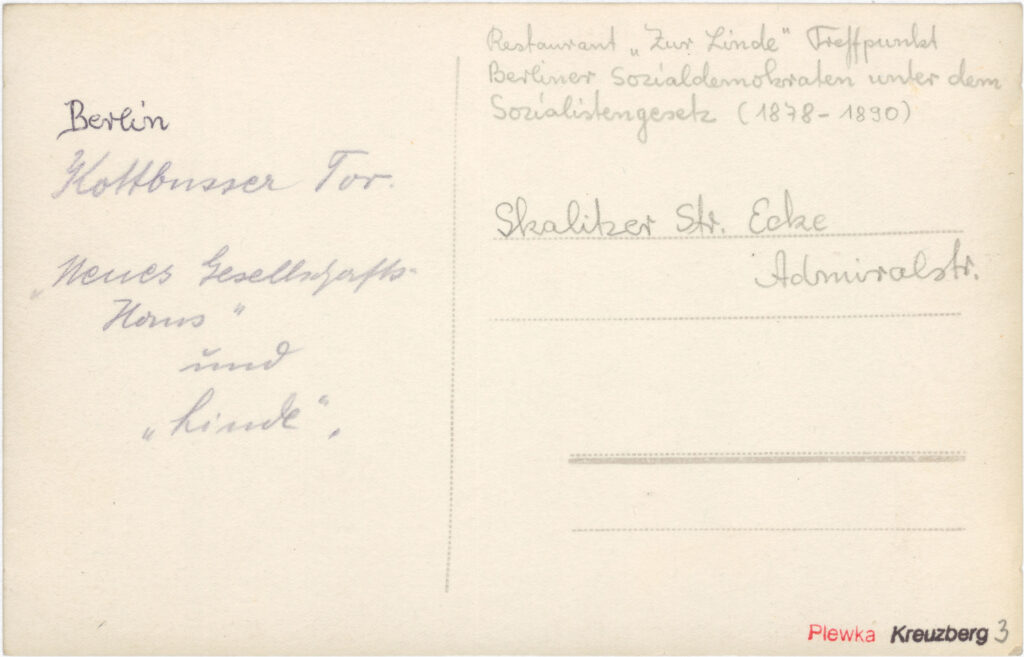 Berlin
Kottbusser Tor.
„Neues Gesellschafts-
Haus"
und
„Linde".
Restaurant „Zur Linde" Treffpunkt
Berliner Sozialdemokraten unter dem
Sozialistengesetz (1878-1890)
Skalitzer Str. Ecke
Admiralstr.
Plewka Kreuzberg 3